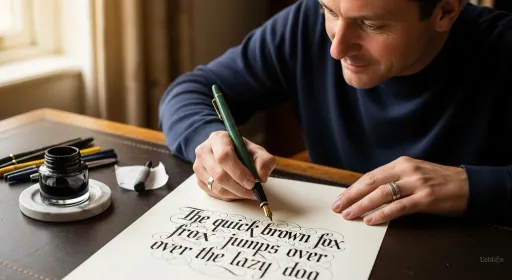 The quick brown fox
frox jumps over
over the lazy doo